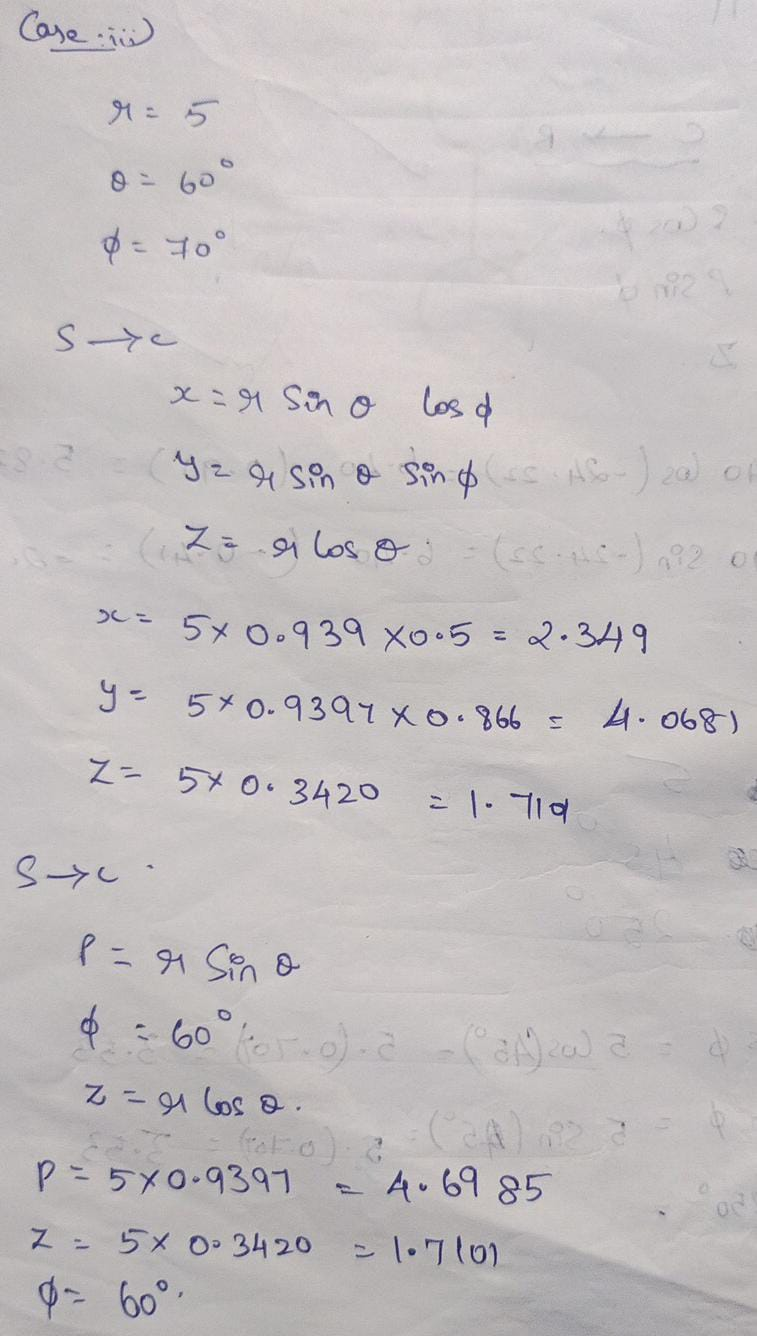 Case :iii)
r = 5
θ = 60°
φ = 70°
S → C
x = r Sin θ Cos φ
y = r Sin θ Sin φ
Z = r Cos θ
x = 5 × 0.939 × 0.5 = 2.349
y = 5 × 0.9397 × 0.866 = 4.0681
Z = 5 × 0.3420 = 1.710
S → C .
ρ = r Sin θ
φ = 60°
z = r Cos θ.
ρ = 5 × 0.9397 = 4.6985
z = 5 × 0.3420 = 1.7101
φ = 60°.